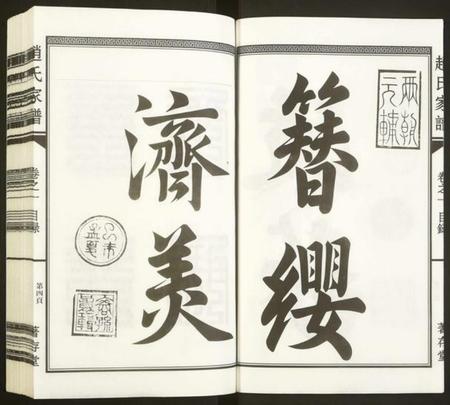 趙氏家譜
卷之一 目錄
著存堂
兩朝
元輔
簪纓
濟美
趙氏家譜
卷之一 目錄
第四頁
著存堂